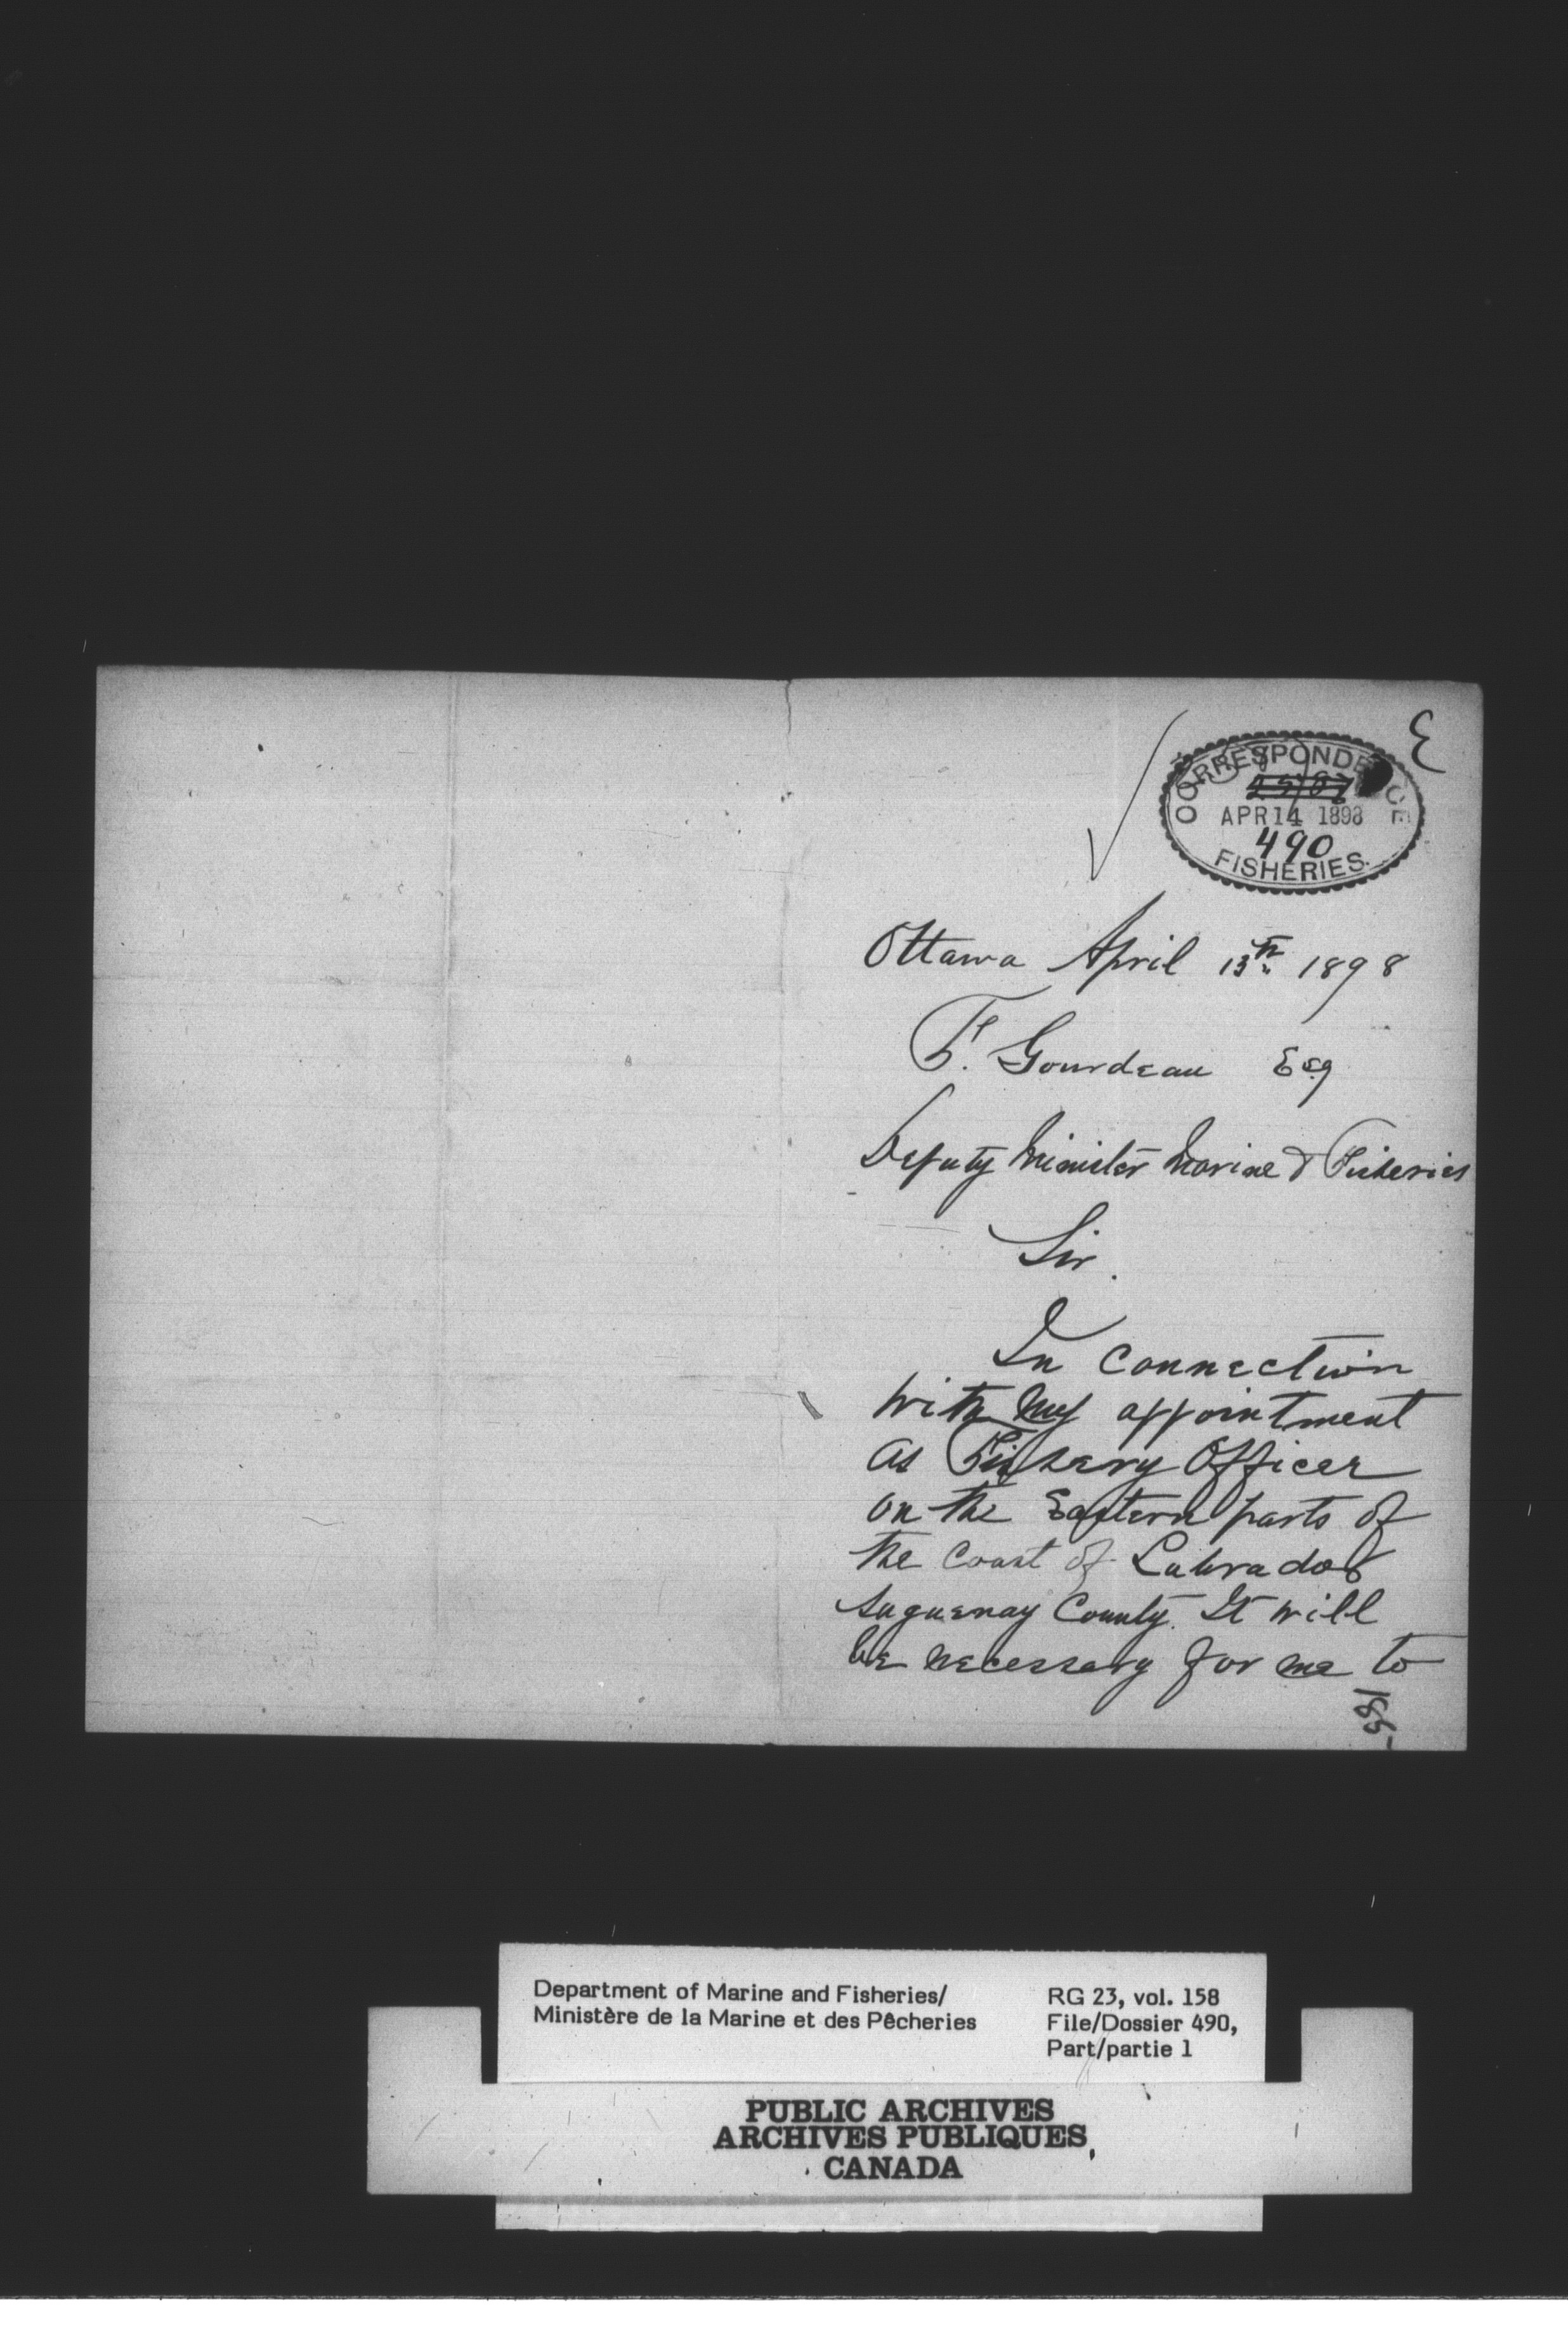 E
CORRESPONDENCE
APR 14 1898
490
FISHERIES.
Ottawa April 13th 1898
F. Gourdeau Esq
Deputy Minister Marine & Fisheries
Sir.
In connection
with my appointment
as Fishery Officer
on the Eastern parts of
the Coast of Labrador
Saguenay County. It will
be necessary for me to
Department of Marine and Fisheries/
Ministère de la Marine et des Pêcheries
RG 23, vol. 158
File/Dossier 490,
Part/partie 1
PUBLIC ARCHIVES
ARCHIVES PUBLIQUES
CANADA